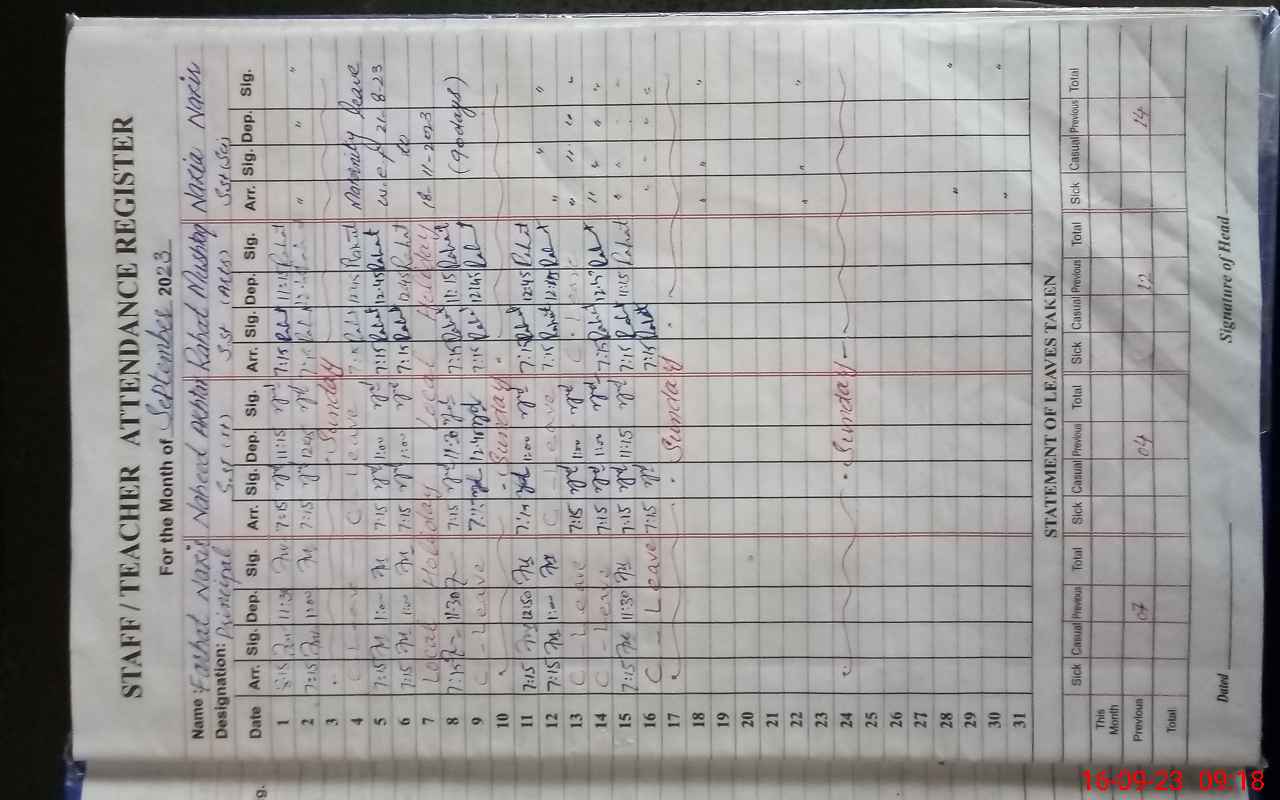 STAFF / TEACHER ATTENDANCE REGISTER
For the Month of September 2023
Name: Farhat Naxis Naheed Akhtar Rahat Mushtaq Naxia Naxis
Designation: Principal S.st (IT) S.st (M.Cs) S.st (Sci)
Date Arr. Sig. Dep. Sig. Arr. Sig. Dep. Sig. Arr. Sig. Dep. Sig. Arr. Sig. Dep. Sig.
1 8:15 11:30 7:15 11:15 7:15 Rahat 11:15 Rahat
2 7:15 1:00 7:15 7:15 " " "
3 Sunday
4 C Leave C Leave 7:15 Rahat 12:45 Rahat Maternity Leave
5 7:15 1:00 7:15 1:00 7:15 Rahat 12:45 Rahat w.e.f 21-8-23
6 7:15 1:00 7:15 1:00 7:15 Rahat 12:45 Rahat to
7 Local Holiday Local Holiday 18-11-2023
8 7:15 11:30 7:15 11:30 7:15 Rahat 11:15 Rahat (90 days)
9 C - Leave 12:45 7:15 Rahat 12:45 Rahat
10 Sunday
11 7:15 12:50 1:00 7:15 Rahat 12:45 Rahat " " "
12 7:15 1:00 C Leave 7:15 Rahat Rahat
13 C Leave 7:15 1:00 C Leave " " " "
14 C - Leave 7:15 1:00 7:15 Rahat 12:45 Rahat " " " "
15 7:15 11:30 7:15 11:15 7:15 Rahat 11:15 Rahat " " " "
16 C - Leave 7:15 7:15 Rahat " " " "
17 Sunday
18 " " "
19
20
21
22 " " "
23
24 Sunday
25
26
27
28 " "
29
30 " "
31
STATEMENT OF LEAVES TAKEN
Sick Casual Previous Total Sick Casual Previous Total Sick Casual Previous Total Sick Casual Previous Total
This Month
Previous 07 04 12 14
Total
Dated Signature of Head
g.
16-09-23 09:18